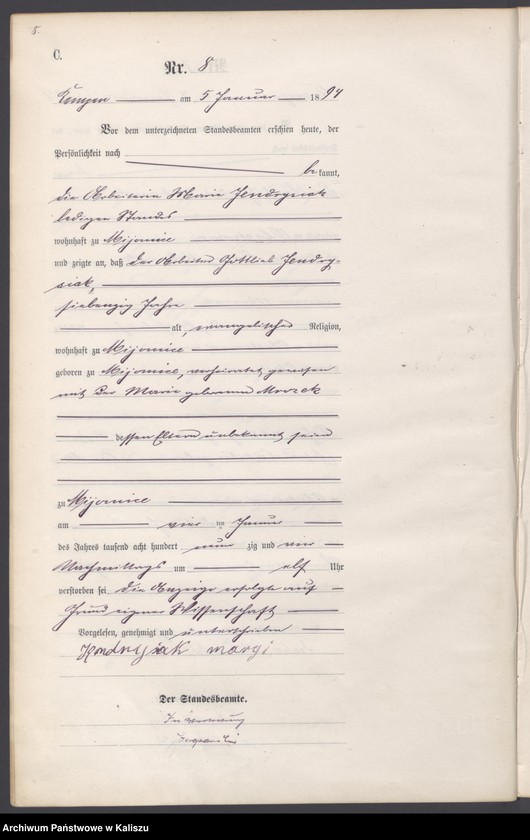 8.
C.
Nr. 8
Kempen am 5 Januar 1894
Vor dem unterzeichneten Standesbeamten erschien heute, der
Persönlichkeit nach
bekannt,
die Arbeiterin Marie Jendrysiak
ledigen Standes
wohnhaft zu Mijomice
und zeigte an, daß der Arbeiter Gottlieb Jendry-
siak,
siebenzig Jahre
alt, evangelischer Religion,
wohnhaft zu Mijomice
geboren zu Mijomice, verheiratet gewesen
mit der Marie geborenen Mrozek
dessen Eltern unbekannt seien
zu Mijomice
am vier ten Januar
des Jahres tausend acht hundert neun zig und vier
Nachmittags um elf Uhr
verstorben sei, die Anzeige erfolgte auf
Grund eigener Wissenschaft
Vorgelesen, genehmigt und unterschrieben
maryi
Der Standesbeamte.
In Vertretung
Archiwum Państwowe w Kaliszu